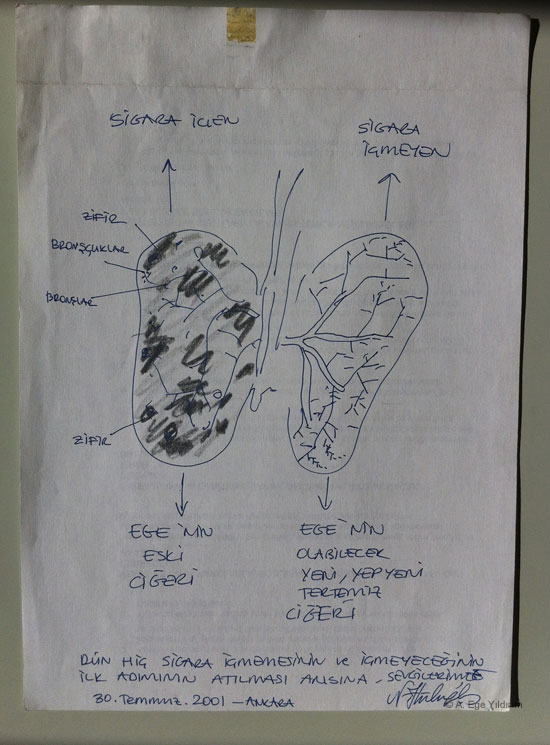 SİGARA İÇEN
SİGARA
İÇMEYEN
ZİFİR
BRONŞÇUKLAR
BRONŞLAR
ZİFİR
EGE'NİN
ESKİ
CİĞERİ
EGE'NİN
OLABİLECEK
YENİ, YEPYENİ
TERTEMİZ
CİĞERİ
DÜN HİÇ SİGARA İÇMEMESİNİN ve İÇMEYECEĞİNİN
İLK ADIMININ ATILMASI ANISINA, SEVGİLERİMLE
30. TEMMUZ. 2001 – ANKARA
© A. Ege Yıldırım